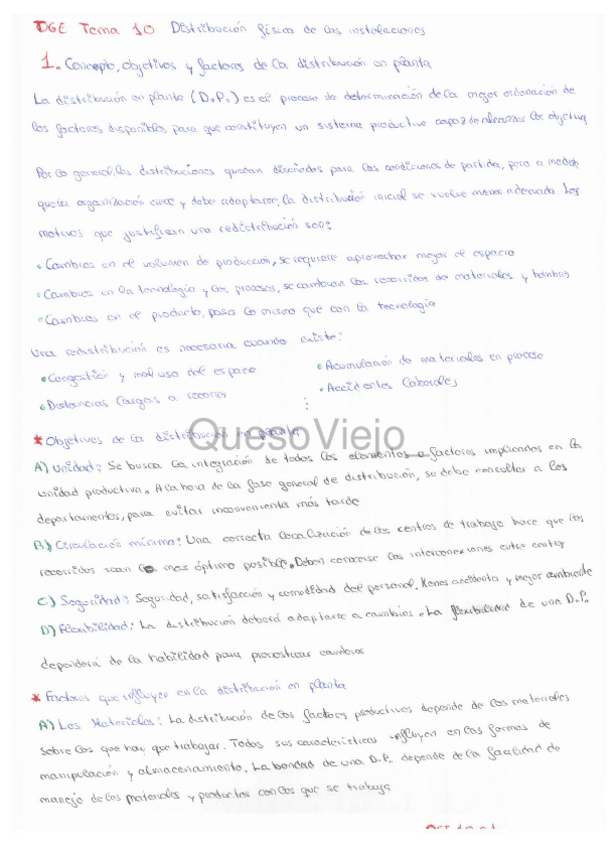 DGE Tema 10 Distribución física de las instalaciones
1. Concepto, objetivos y factores de la distribución en planta
La distribución en planta (D.P.) es el proceso de determinación de la mejor ordenación de
los factores disponibles para que constituyan un sistema productivo capaz de alcanzar los objetivos
Por lo general, las distribuciones quedan diseñadas para las condiciones de partida, pero a medida
que la organización crece y debe adaptarse, la distribución inicial se vuelve menos adecuada. Los
motivos que justifican una redistribución son:
• Cambios en el volumen de producción, se requiere aprovechar mejor el espacio
• Cambios en la tecnología y los procesos, se cambian los recorridos de materiales y hombres
• Cambios en el producto, pasa lo mismo que con la tecnología
Una redistribución es necesaria cuando existe:
• Congestión y mal uso del espacio
• Acumulación de materiales en proceso
• Distancias largas a recorrer
• Accidentes laborales
⋮
QuesoViejo
* Objetivos de la distribución en planta
A) Unidad: Se busca la integración de todos los elementos o factores implicados en la
unidad productiva. A la hora de la fase general de distribución, se debe consultar a los
departamentos, para evitar inconvenientes más tarde
B) Circulación mínima: Una correcta localización de los centros de trabajo hace que los
recorridos sean lo mas óptimo posible. Deben conocerse las interconexiones entre centros
C) Seguridad: Seguridad, satisfacción y comodidad del personal. Menos accidentes y mejor ambiente
D) Flexibilidad: La distribución deberá adaptarse a cambios. La flexibilidad de una D.P.
dependerá de la habilidad para pronosticar cambios
* Factores que influyen en la distribución en planta
A) Los Materiales: La distribución de los factores productivos depende de los materiales
sobre los que hay que trabajar. Todas sus características influyen en las formas de
manipulación y almacenamiento. La bondad de una D.P. depende de la facilidad de
manejo de los materiales y productos con los que se trabaja